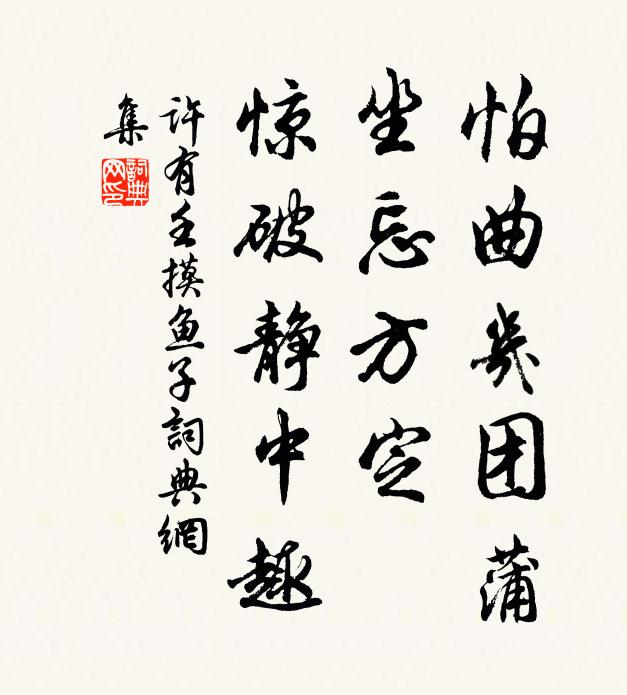 怕曲几团蒲
坐忘方定
惊破静中趣
许有壬摸鱼子詞典網
集
詞典网印